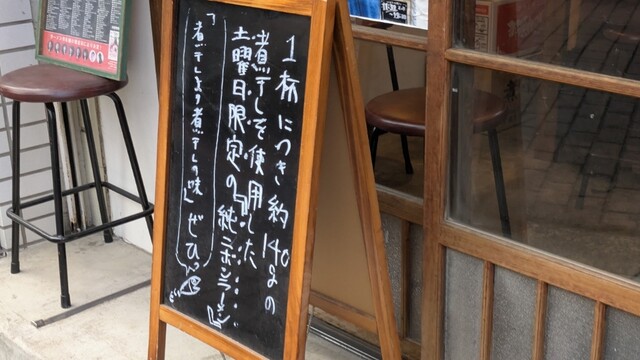 1杯につき約140gの
煮干しを使用した…
土曜日限定の純ニボシラーメン
「煮干しより煮干しの味」
ぜひっ